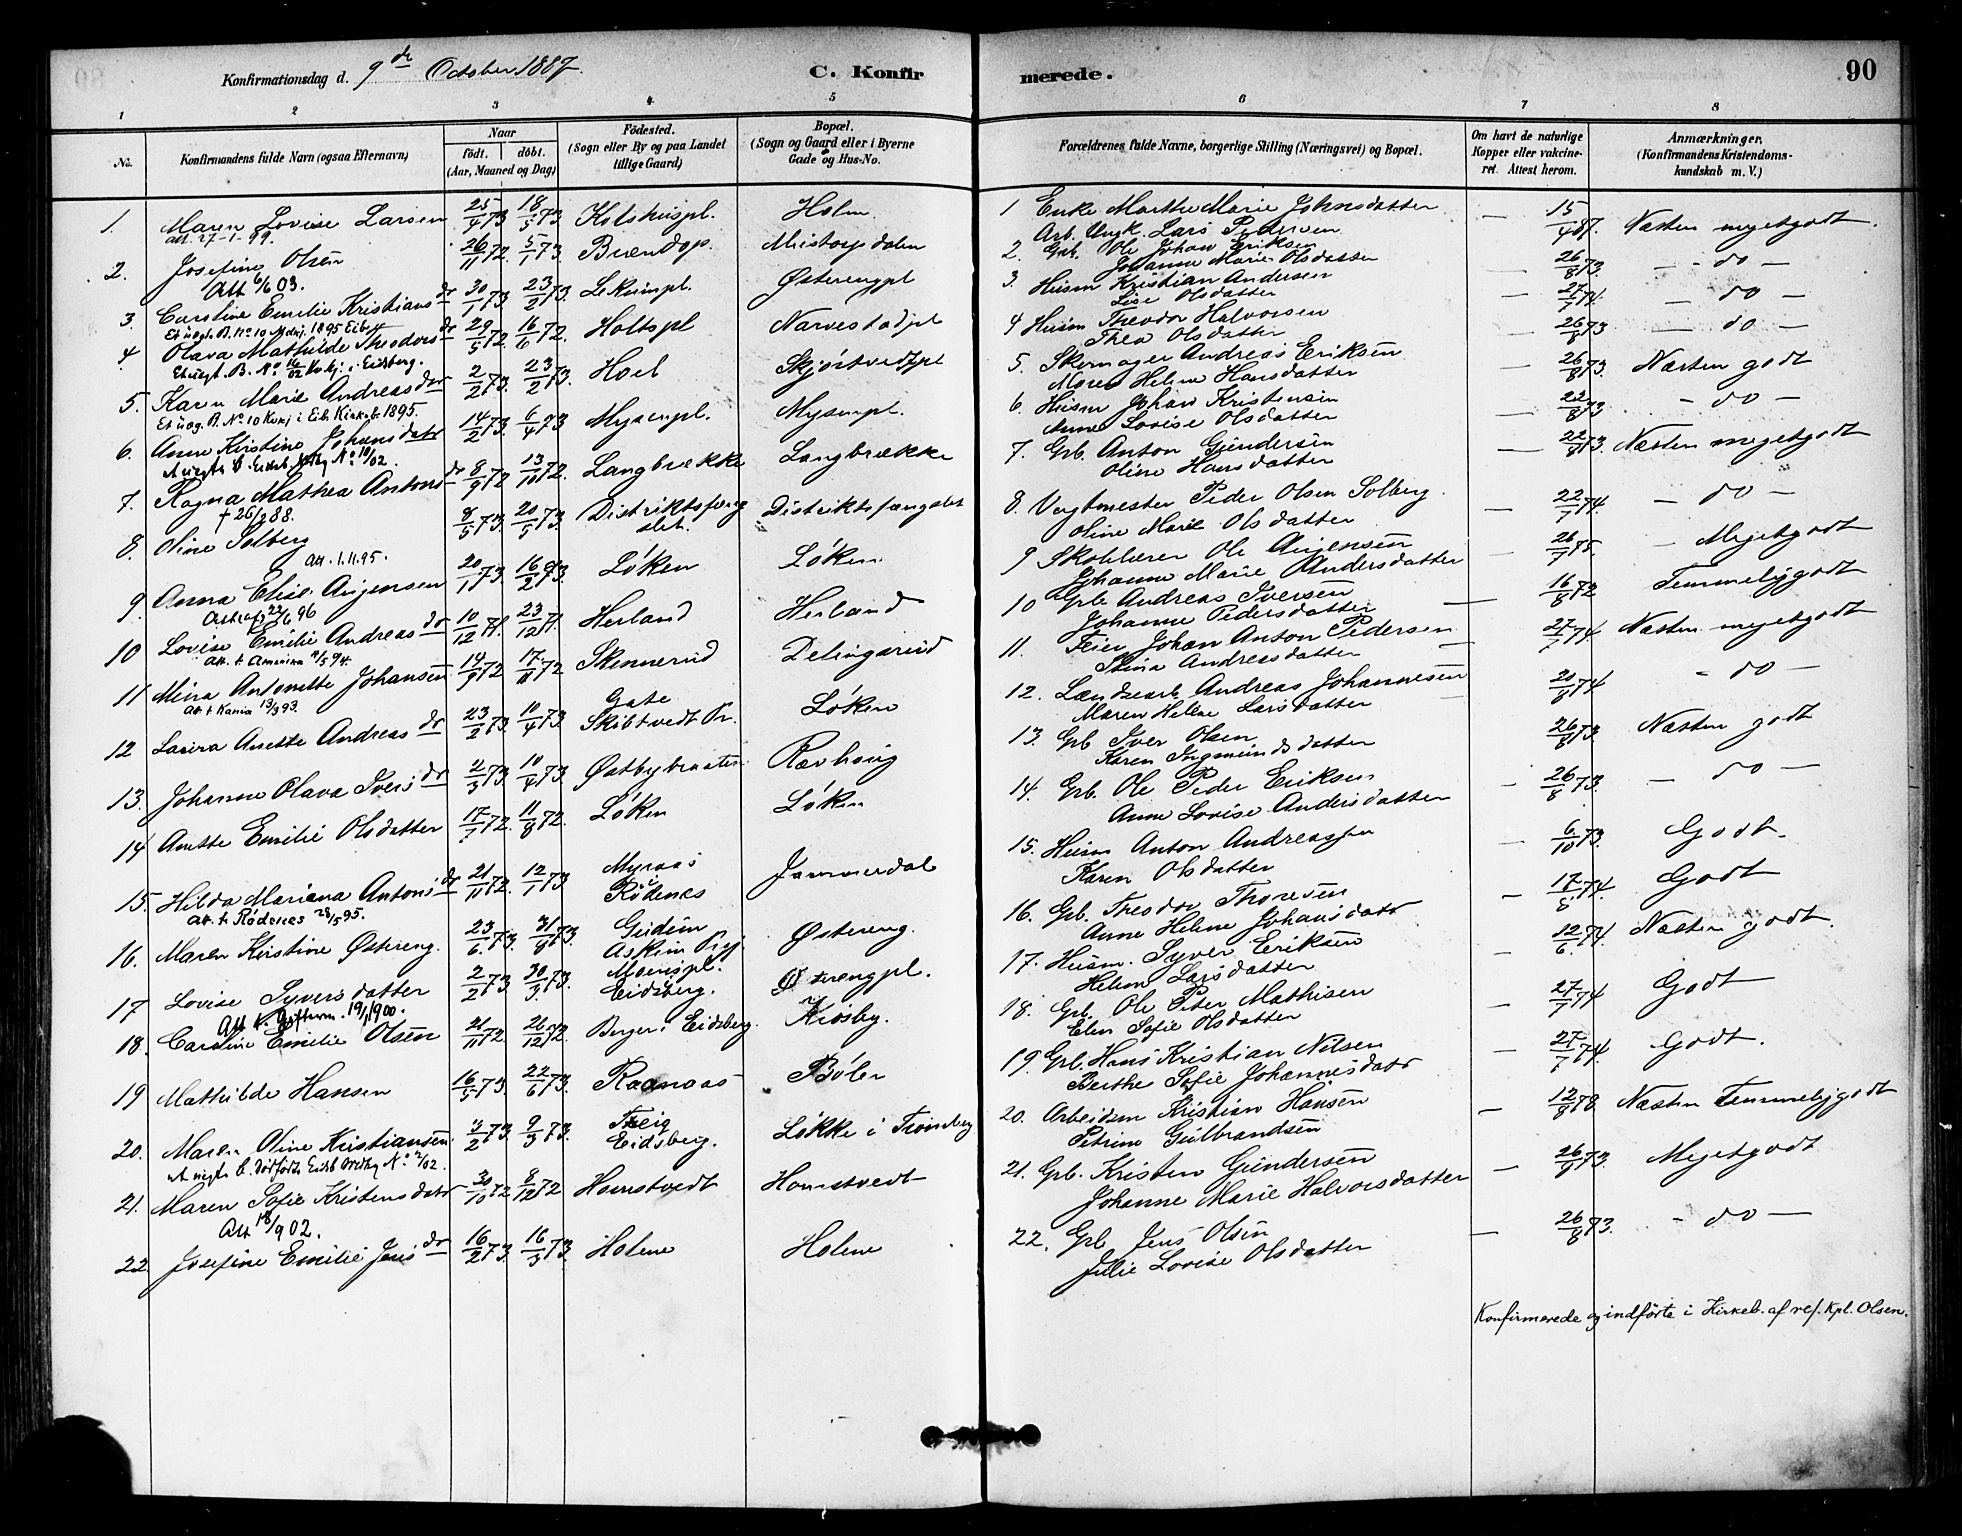 Konfirmationsdag d. 9de October 1887.
C. Konfirmerede.
90
1 2 3 4 5 6 7 8
No.
Konfirmandens fulde Navn (ogsaa Efternavn)
Naar
födt. döbt.
(Aar, Maaned og Dag)
Födested.
(Sogn eller By og paa Landet
tillige Gaard)
Bopæl.
(Sogn og Gaard eller i Byerne
Gade og Hus-No.
Forældrenes fulde Navne, borgerlige Stilling (Næringsvei) og Bopæl.
Om havt de naturlige
Kopper eller vakcine-
ret. Attest herom.
Anmærkninger.
(Konfirmandens Kristendoms-
kundskab m. V.)
1. Maren Lovise Larsen 25/4 73 18/5 73 Kolshuspl. Holm 1 Enke Marthe Marie Johnsdatter — 15/4 87. Næsten megetgodt.
Att. 27-1-99. Arb. Ungk. Lars Pedersen
2. Josefine Olsen 26/11 72. 5/1 73 Brændop. Mistorpdalen 2. Grb. Ole Johan Eriksen — 26/8 73. — do —
Att 6/6 03. Johanne Marie Olsdatter
3. Caroline Emilie Kristiansdr 30/1 73 23/2 73. Lekumpl. Østerengpl 3. Husm Kristian Andersen — 27/7 74. — do —
Lise Olsdatter
4 Olava Mathilde Theodorsdr 29/5 72. 16/6 72. Holtspl Narvestadpl 4 Husm Theodor Halvorsen — 26/8 73 — do —
Thea Olsdatter
5. Karen Marie Andreasdr 2/2 73. 23/2 73. Hoel Skjörtvedtpl 5. Skomager Andreas Eriksen — 26/8 73. Næsten godt
Maren Helene Hansdatter
6. Anne Kirstine Johansdatr 14/2 73. 6/4 73 Mysenpl. Mysenpl. 6. Husm Johan Kristensen — 22/8 73 — do —
Anne Lovise Olsdatter
7. Ragna Mathea Antonsdr 8/9 72 13/10 72. Langbrække Langbrække 7. Grb. Anton Gundersen — 22/8 73. Næsten megetgodt
† 26/2 88. Oline Hansdatter
8. Oline Solberg 8/5 73. 20/5 73. Distriktsfængslet. Distriktsfængslet 8. Vagtmester Peder Olsen Solberg. 22/7 74 — do —
Att. 1.11.95. Oline Marie Olsdatter
9 Anna Elise Argensen 20/1 73. 16/2 73. Löken Löken 9 Skolelærer Ole Argensen — 26/7 75. — Megetgodt
Johanne Marie Andersdatter
10 Lovise Emilie Andreasdr 10/12 71. 23/12 71. Herland Herland 10 Grb. Andreas Iversen — 16/8 72 Temmeliggodt
Att. t. Amerika 11/5 94. Johanne Pedersdatter
11 Mina Antonette Johansen 14/9 72 17/11 72 Skinnerud Delingsrud 11. Feier Johan Anton Pedersen — 27/7 74. Næsten megetgodt
13/3 93. Stina Andreasdatter
12 Laura Anette Andreasdr 23/2 73. 10/4 73. Gate Skibtvedt Pr. Löken 12. Landsearb. Andreas Johannesen 20/8 74 — do —
Maren Helene Larsdatter
13. Johanne Olava Iversdr 2/3 73. 10/4 73. Østbybraaten Ravhaug 13. Grb Iver Olsen 26/8 73. Næsten godt
Karen Ingmundsdatter
14 Anette Emilie Olsdatter 17/7 72. 11/8 72. Löken Löken 14. Grb. Ole Peder Eriksen — 26/8 73. — do —
Anne Lovise Andersdatter
15. Hilda Mariana Antonsdr 21/11 72. 12/1 73. Myraas i Rödenes Jammerdal 15. Husm Anton Andreassen — 6/10 73. Godt.
Att. t. Rödenes 28/5 95. Karen Olsdatter
16. Maren Kristine Østreng. 23/6 73. 31/8 73. Gudim Askim Prgj. Østereng. 16. Grb. Theodor Thoresen — 17/8 74. Godt
Anne Helene Johansdatr
17 Lovise Syversdatter 2/2 73. 30/3 73. Eidsberg. Østerengpl. 17. Husm. Syver Eriksen — 12/6 74. Næsten godt.
19/1 1900. Helene Larsdatter
18. Caroline Emilie Olsen 21/11 72. 26/12 72. Berger i Eidsberg. Kirsby. 18. Grb. Ole Peter Mathisen — 27/7 74 Godt
Elen Sofie Olsdatter
19 Mathilde Hansen 16/5 73. 22/6 73. Raanaas Böler 19 Grb. Hans Kristian Nilsen — 27/7 74. Godt.
Berthe Sofie Johannesdatr
20. Maren Oline Kristiansen. 2/2 73. 9/3 73. Eidsberg. Løkke i Trömborg 20. Arbeidsm Kristian Hansen — 12/8 78 Næsten Temmeliggodt
Petrine Gulbrandsen
21. Maren Sofie Kristensdatr 30/10 72 8/12 72 Homstvedt Homstvedt 21. Grb. Kristen Gundersen — 26/9 73. Megetgodt
Att 18/9 02. Johanne Marie Halvorsdatter
22 Josefine Emilie Jensdr 16/2 73. 16/3 73. Holene Holene 22. Grb Jens Olsen — 26/8 73. — do —
Julie Lovise Olsdatter
Konfirmerede og indförte i Kirkeb. af res. Kpl. Olsen.